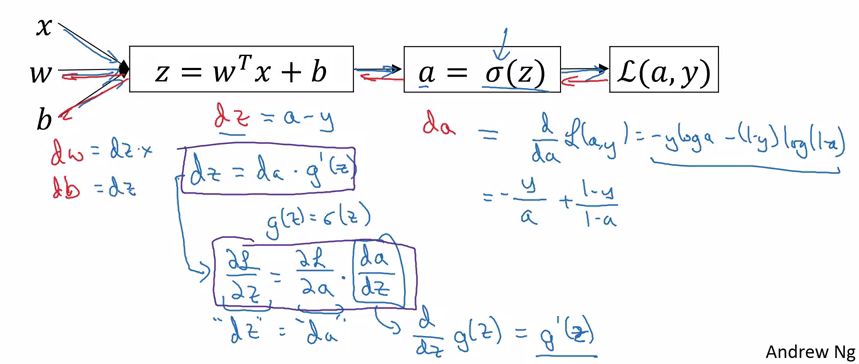 x
w
b
z = wᵀx + b
a = σ(z)
ℒ(a, y)
dz = a - y
dw = dz · x
db = dz
dz = da · g'(z)
g(z) = σ(z)
∂ℒ/∂z = ∂ℒ/∂a · da/dz
"dz" = "da"
d/dz g(z) = g'(z)
da = d/da ℒ(a,y) = -y log a - (1-y) log(1-a)
= -y/a + 1-y/1-a
Andrew Ng